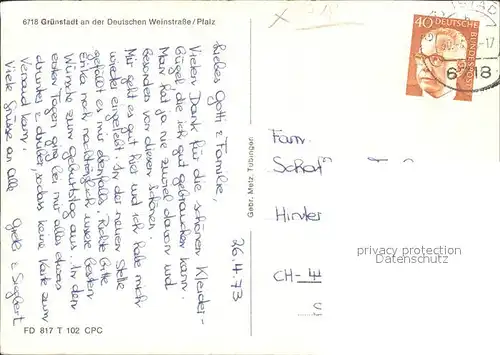 6718 Grünstadt an der Deutschen Weinstraße/Pfalz
26.4.73
Liebes Gotti & Familie,
Vielen Dank für die schönen Kleider-
bügel die ich gut gebrauchen kann.
Man hat ja nie zuviel davon und
besonders von diesen schönen.
Mir geht es gut hier und ich habe mich
wieder eingelebt. In der neuen Stelle
gefällt es mir ebenfalls. Richte bitte
Erika noch nachträglich unsere besten
Wünsche zum Geburtstag aus. In den
ersten Tagen ging bei mir alles etwas
drunter & drüber, sodass keine Karte zum
Versand kam.
Viele Grüsse an alle
& Siegbert
FD 817 T 102 CPC
Gebr. Metz, Tübingen
40 DEUTSCHE BUNDESPOST
6718
Fam.
Schaf
Hinter
CH-
privacy protection
Datenschutz